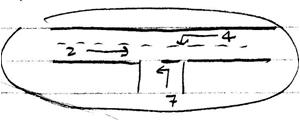 2 4
7